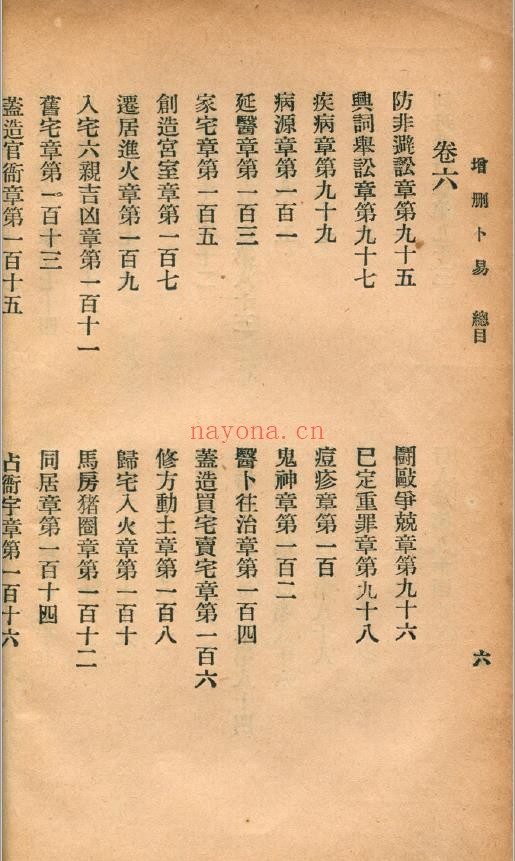 增刪卜易 總目 六
卷六
防非避訟章第九十五 鬪毆爭競章第九十六
興詞舉訟章第九十七 已定重罪章第九十八
疾病章第九十九 痘疹章第一百
病源章第一百一 鬼神章第一百二
延醫章第一百三 醫卜往治章第一百四
家宅章第一百五 蓋造買宅賣宅章第一百六
創造宮室章第一百七 修方動土章第一百八
遷居進火章第一百九 歸宅入火章第一百十
入宅六親吉凶章第一百十一 馬房猪圈章第一百十二
舊宅章第一百十三 同居章第一百十四
蓋造官衙章第一百十五 占衙宇章第一百十六
nayona.cn